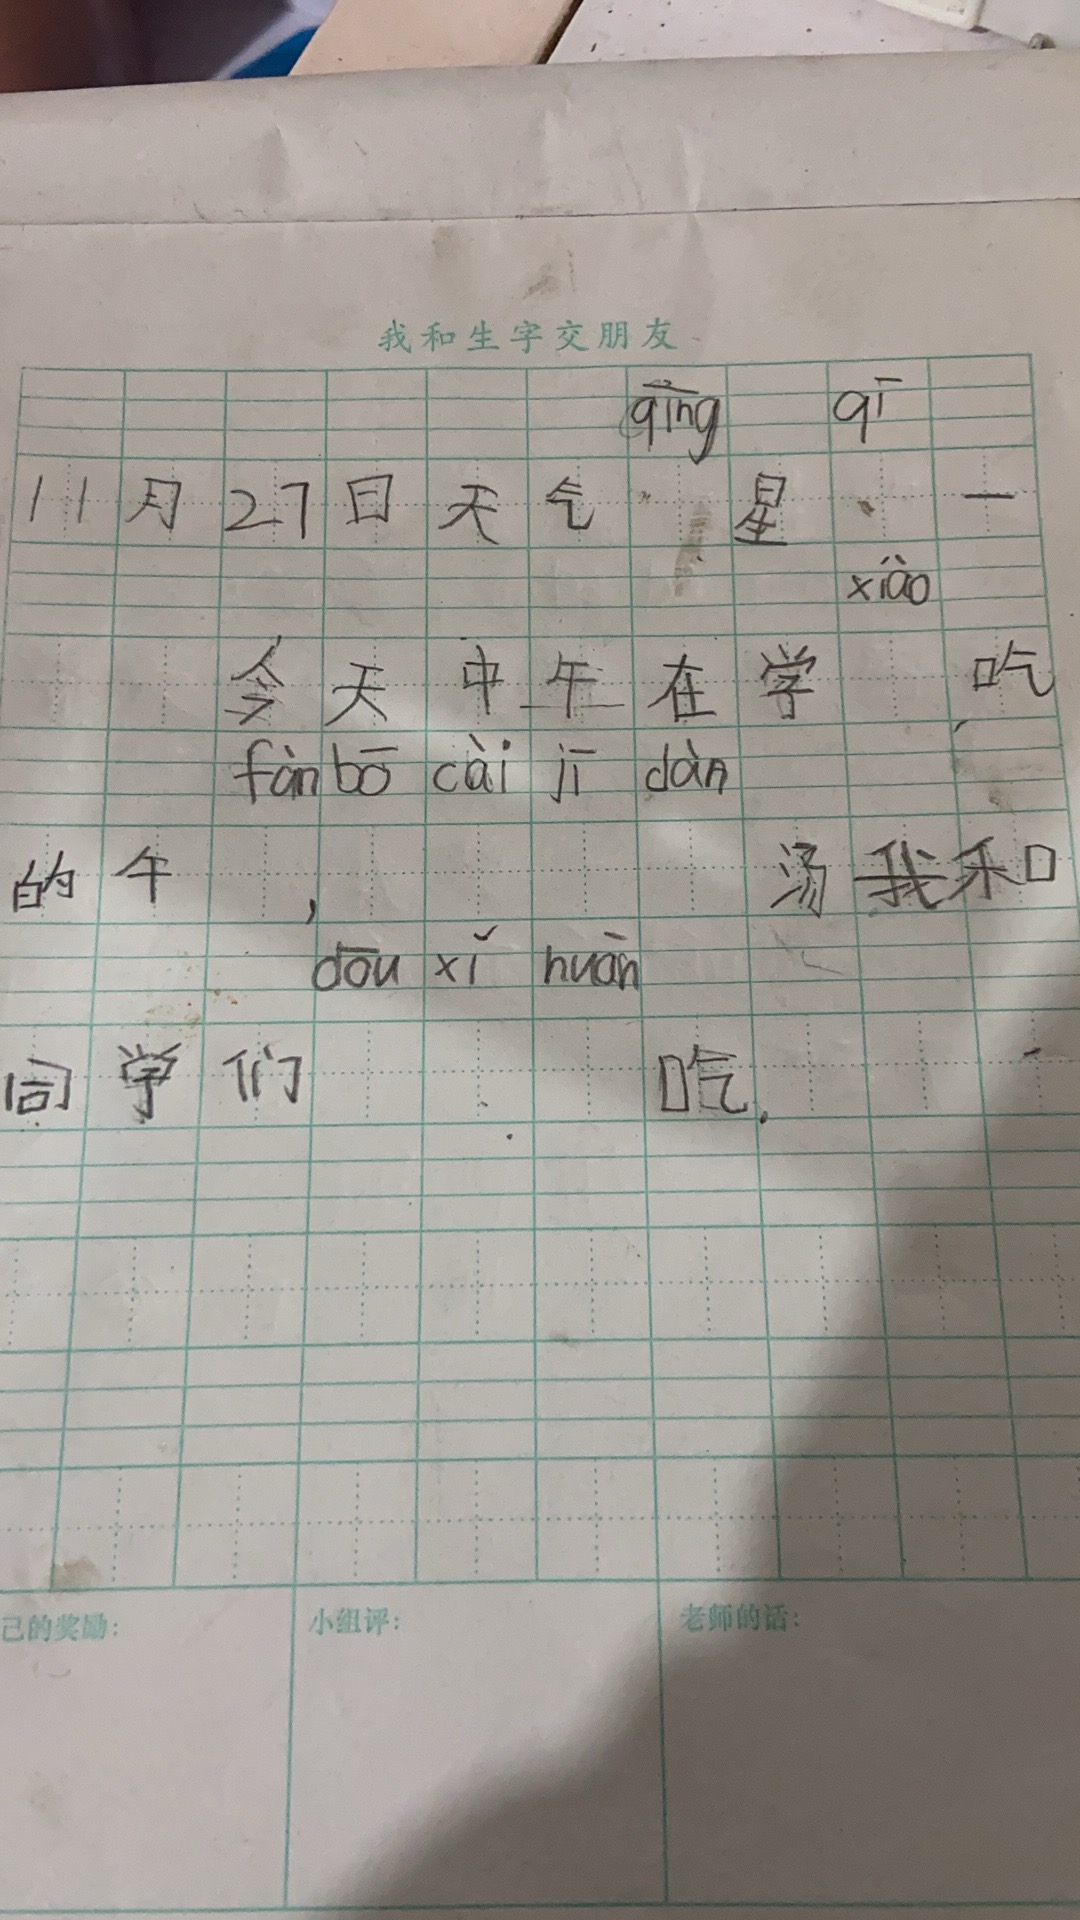 我和生字交朋友
qīng qī
11月27日天气 星 一
xiào
今天中午在学 吃
fàn bō cài jī dàn
的午 , 汤我和
dōu xǐ huān
同学们 吃.
己的奖励:
小组评:
老师的话: